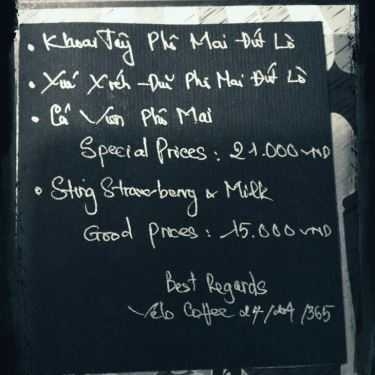 • Khoai Tây Phô Mai Đút Lò
• Xúc Xích Đức Phô Mai Đút Lò
• Cá Viên Phô Mai
Special Prices: 21.000 VND
• Sting Strawberry & Milk
Good Prices: 15.000 VND
Best Regards
Coffee 24/ /365